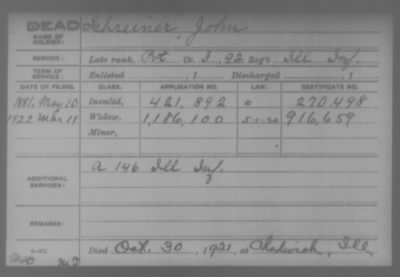 DEAD
NAME OF SOLDIER: Schreiner, John
SERVICE: Late rank, Pvt Co. I, 92 Reg't Ill Inf.
TERM OF SERVICE: Enlisted , 1 Discharged , 1
DATE OF FILING. CLASS. APPLICATION NO. LAW. CERTIFICATE NO.
1881, May 10 Invalid, 421,892 270,498
1922 Mar 11 Widow, 1,186,100 5-1-20 916,659
Minor,
ADDITIONAL SERVICES: A 146 Ill Inf.
REMARKS:
Died Oct. 30, 1921, at Chadwick, Ill,